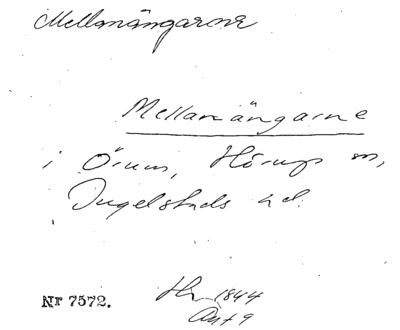 Mellanängarne
Mellanängarne
i Örum, Hörups sn,
Ingelstads hd.
Nr 7572.
Hr 1844
Akt 9